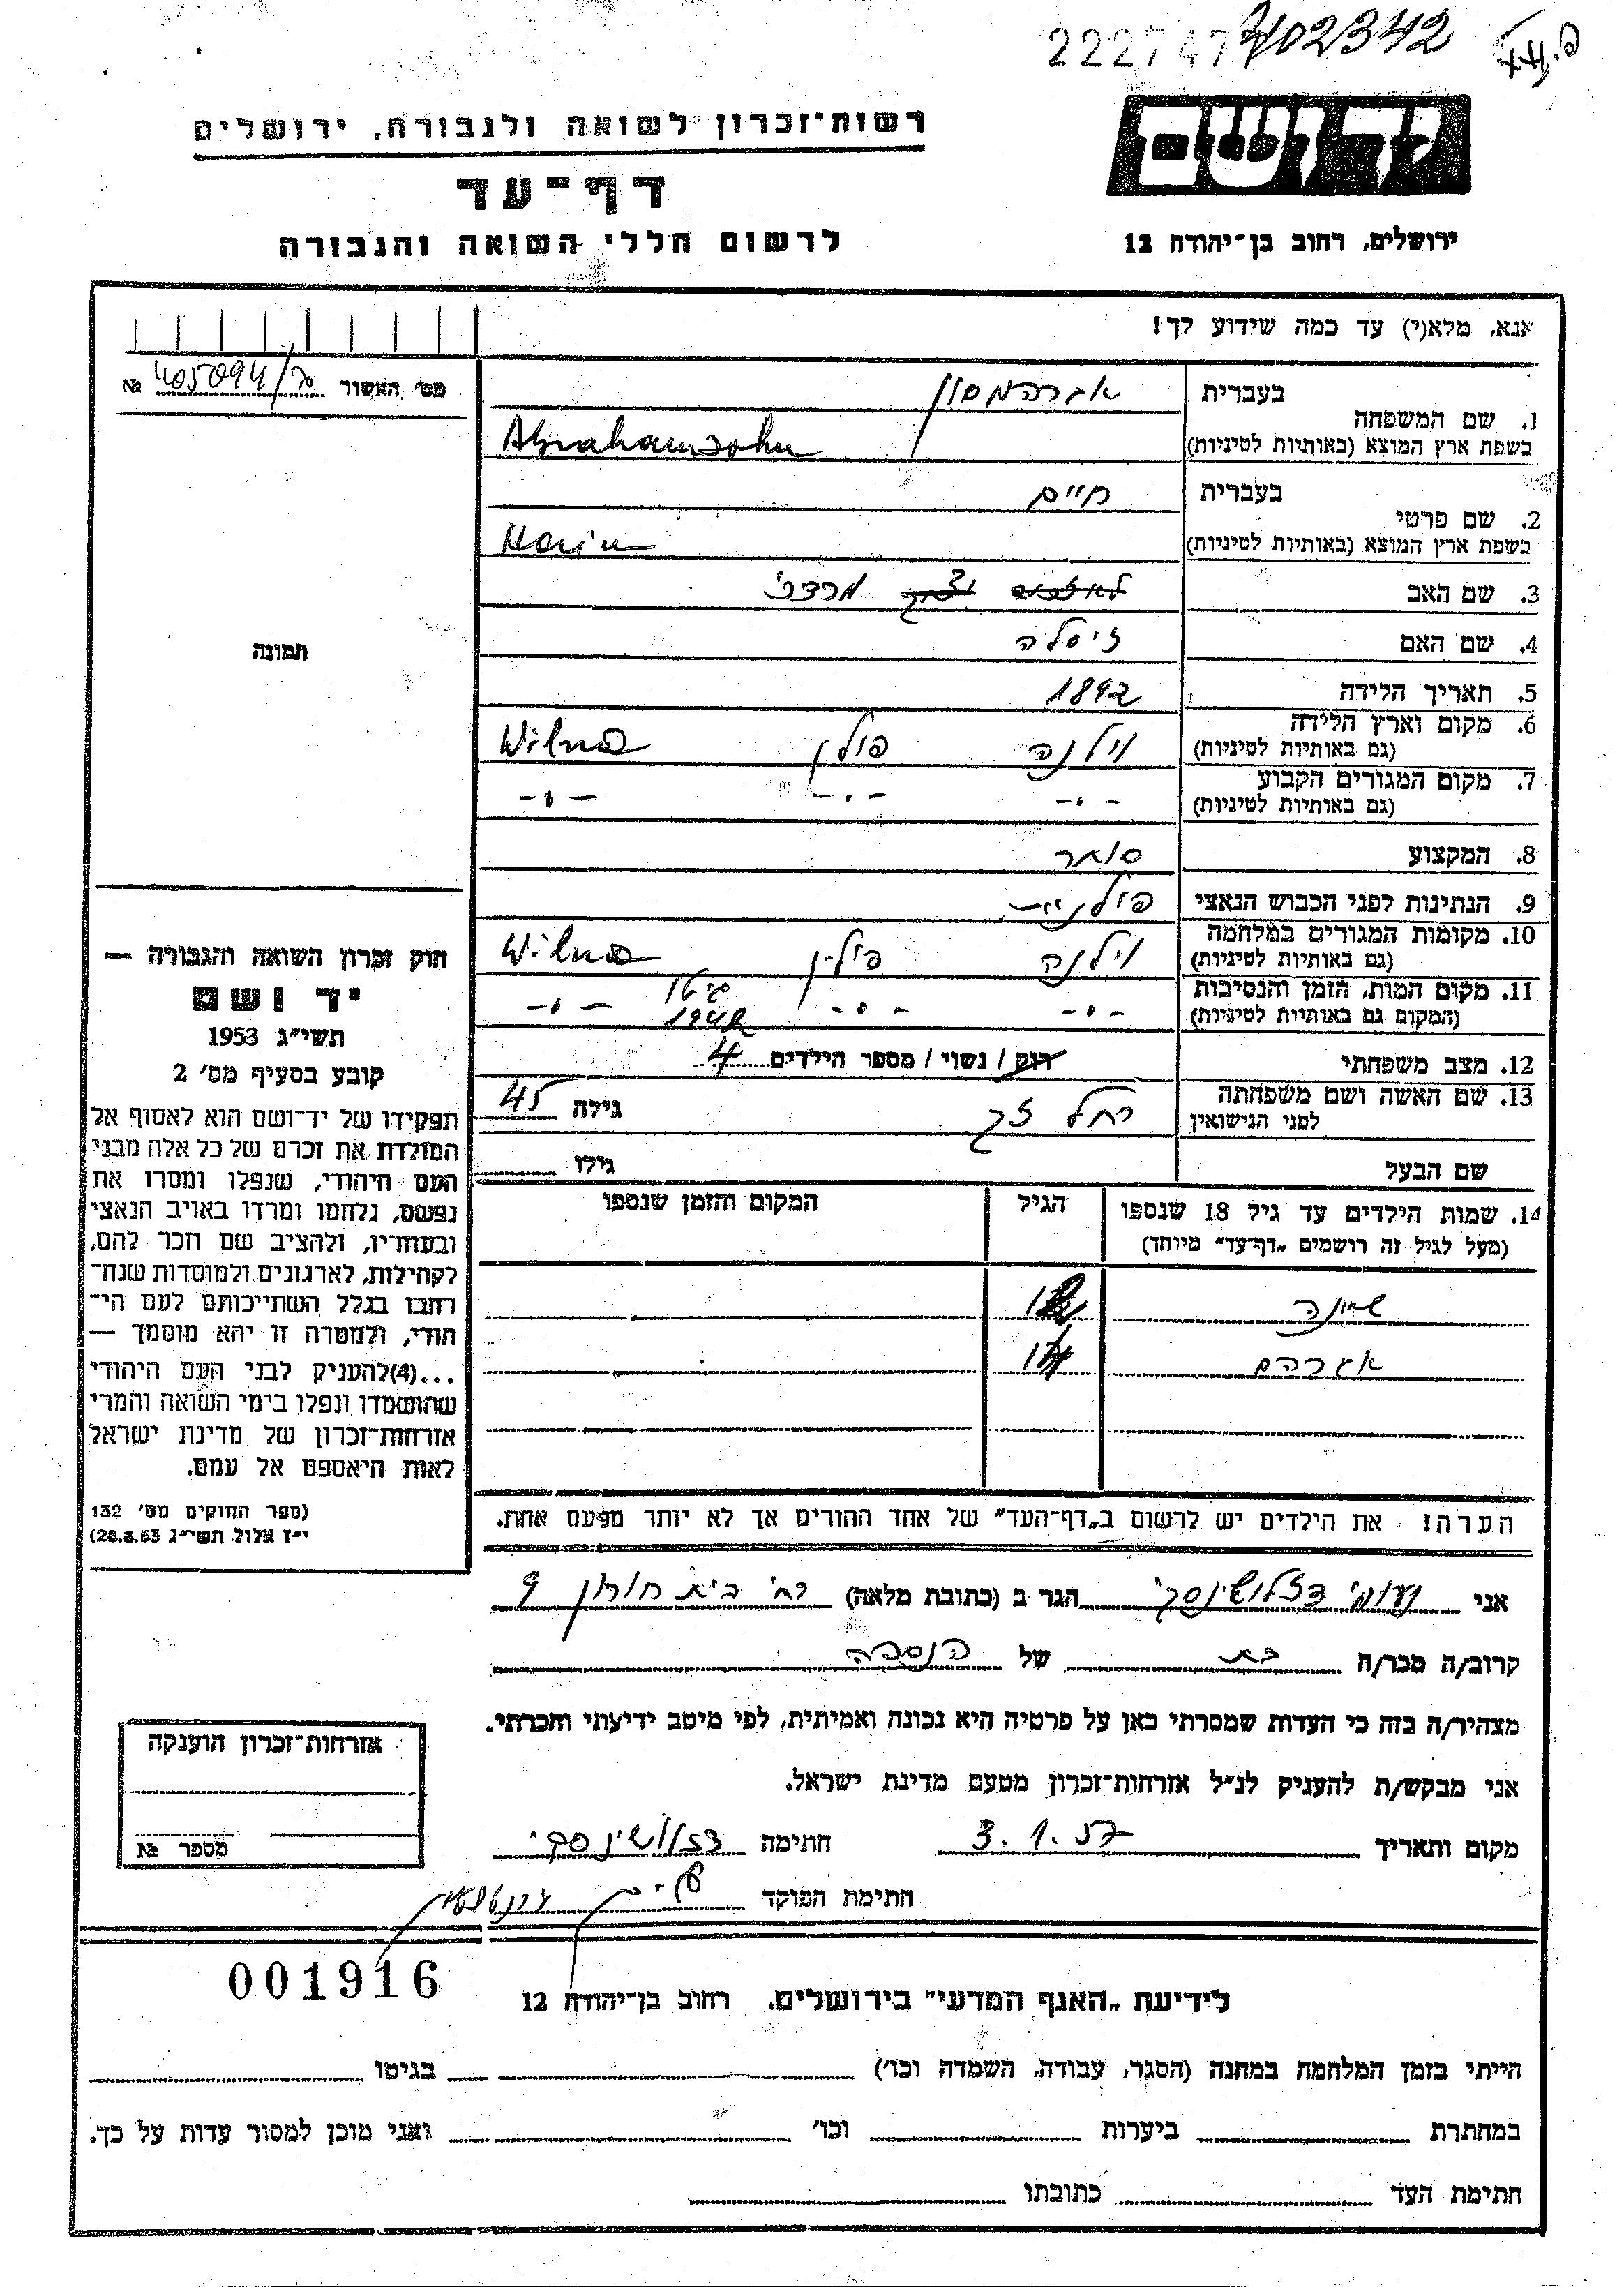 222747
402342
רשות־זכרון לשואה ולגבורה, ירושלים
דף־עד
לרשום חללי השואה והגבורה
יד ושם
ירושלים, רחוב בן־יהודה 12
אנא, מלא(י) עד כמה שידוע לך!
מס׳ האשור №
תמונה
1. שם המשפחה בעברית אברהמסון
בשפת ארץ המוצא (באותיות לטיניות) Abrahamsohn
2. שם פרטי בעברית חיים
בשפת ארץ המוצא (באותיות לטיניות)
3. שם האב מרדכי
4. שם האם זיסלה
5. תאריך הלידה 1892
6. מקום וארץ הלידה (גם באותיות לטיניות) וילנה פולין Wilna
7. מקום המגורים הקבוע (גם באותיות לטיניות) -"- -"- -"-
8. המקצוע סוחר
9. הנתינות לפני הכבוש הנאצי פולנית
10. מקומות המגורים במלחמה (גם באותיות לטיניות) וילנה פולין Wilna
11. מקום המות, הזמן והנסיבות (המקום גם באותיות לטיניות) -"- -"- גיטו 1942 -"-
12. מצב משפחתי רווק / נשוי / מספר הילדים 4
13. שם האשה ושם משפחתה לפני הנישואין רחל זק גילה 45
שם הבעל גילו
14. שמות הילדים עד גיל 18 שנספו
(מעל לגיל זה רושמים „דף־עד” מיוחד)
הגיל
המקום והזמן שנספו
שיינה
אברהם
הערה! את הילדים יש לרשום ב„דף־העד” של אחד ההורים אך לא יותר מפעם אחת.
חוק זכרון השואה והגבורה —
יד ושם
תשי״ג 1953
קובע בסעיף מס׳ 2
תפקידו של יד־ושם הוא לאסוף אל
המולדת את זכרם של כל אלה מבני
העם היהודי, שנפלו ומסרו את
נפשם, נלחמו ומרדו באויב הנאצי
ובעוזריו, ולהציב שם וזכר להם,
לקהילות, לארגונים ולמוסדות שנח־
רבו בגלל השתייכותם לעם הי־
הודי, ולמטרה זו יהא מוסמך —
...(4) להעניק לבני העם היהודי
שהושמדו ונפלו בימי השואה והמרי
אזרחות־זכרון של מדינת ישראל
לאות היאספם אל עמם.
(ספר החוקים מס׳ 132
י״ז אלול תשי״ג 28.8.53)
אני נעומי הגר ב (כתובת מלאה) רח׳ בית חורון 9
קרוב/ה מכר/ה בת של הנספה
מצהיר/ה בזה כי העדות שמסרתי כאן על פרטיה היא נכונה ואמיתית, לפי מיטב ידיעתי והכרתי.
אני מבקש/ת להעניק לנ״ל אזרחות־זכרון מטעם מדינת ישראל.
מקום ותאריך 3.1.57 חתימה
חתימת הפוקד
אזרחות־זכרון הוענקה
מספר №
001916
לידיעת „האגף המדעי” בירושלים. רחוב בן־יהודה 12
הייתי בזמן המלחמה במחנה (הסגר, עבודה, השמדה וכו׳) בגיטו
במחתרת ביערות וכו׳ ואני מוכן למסור עדות על כך.
חתימת העד כתובתו